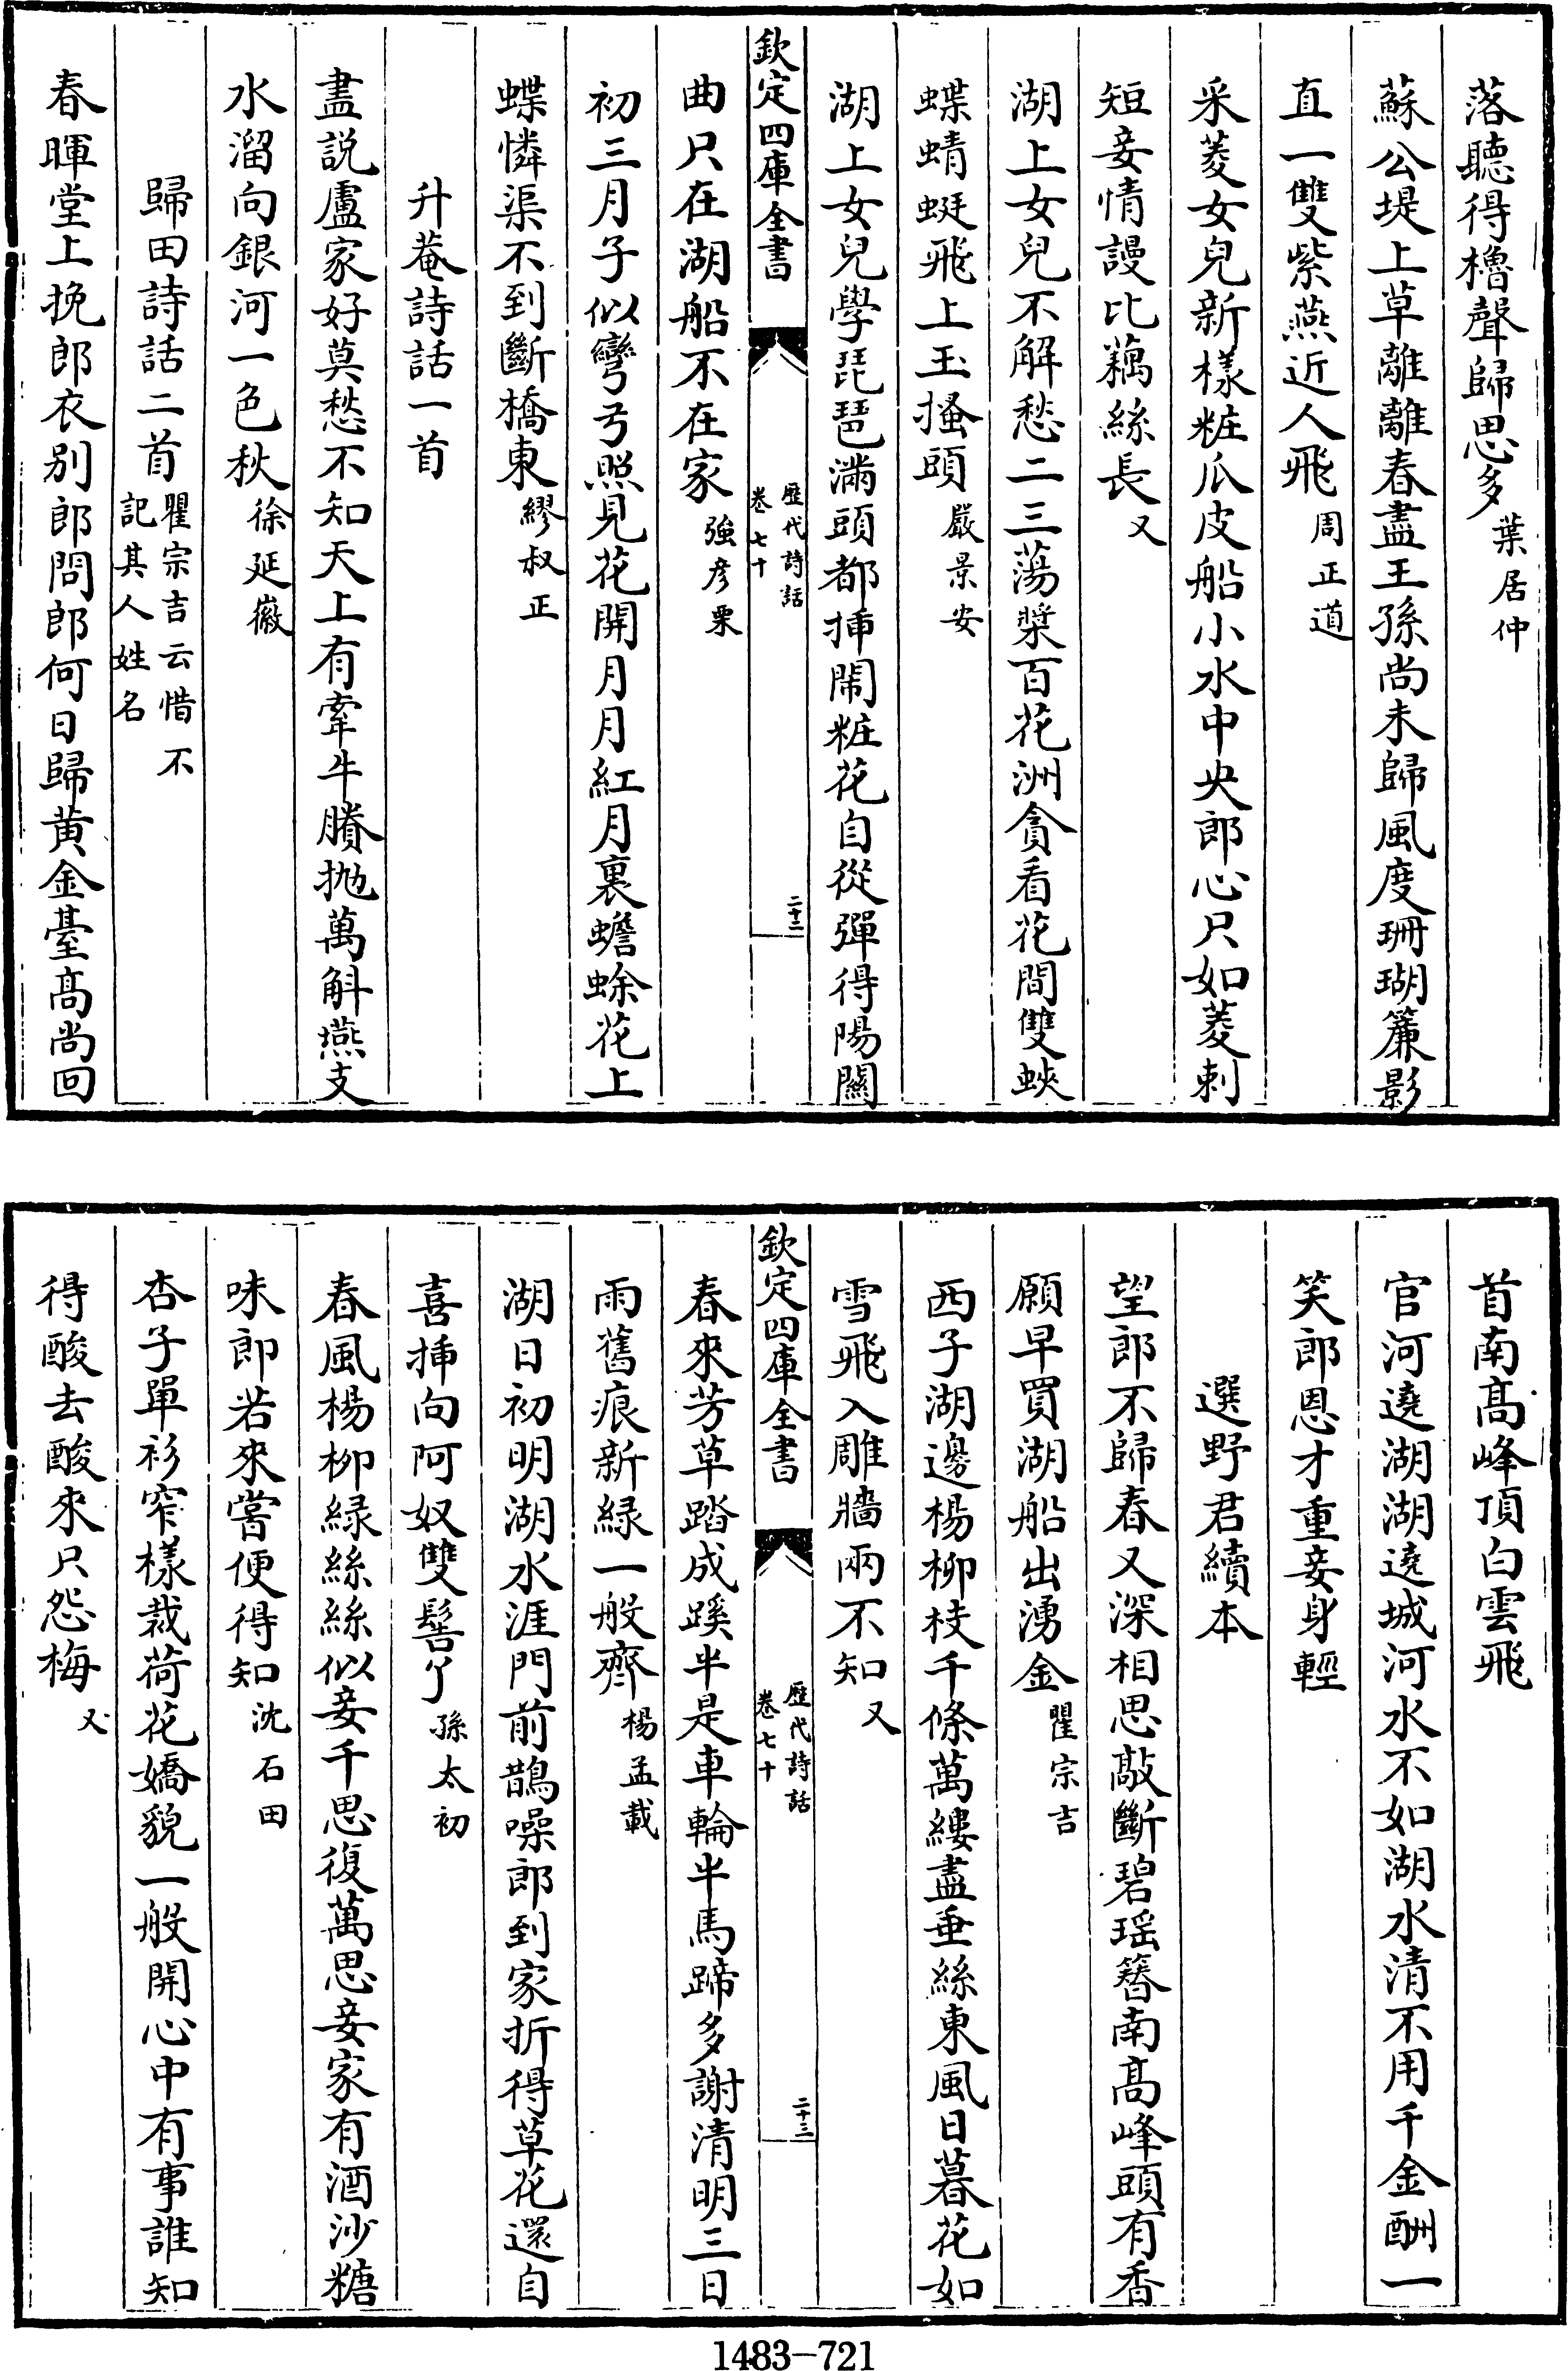 落聽得櫓聲歸思多葉居仲
蘇公堤上草離離春盡王孫尚未歸風度珊瑚簾影
直一雙紫燕近人飛周正道
采菱女兒新樣粧瓜皮船小水中央郎心只如菱刺
短妾情謾比藕絲長又
湖上女兒不解愁二三蕩槳百花洲貪看花間雙蛺
蝶蜻蜓飛上玉搔頭嚴景安
湖上女兒學琵琶滿頭都挿鬧粧花自從彈得陽關
欽定四庫全書
歷代詩話
卷七十
二十二
曲只在湖船不在家強彦栗
初三月子似彎弓照見花開月月紅月裏蟾蜍花上
蝶憐渠不到斷橋東繆叔正
升菴詩話一首
盡説盧家好莫愁不知天上有牽牛賸抛萬斛燕支
水溜向銀河一色秋徐延徽
歸田詩話二首瞿宗吉云惜不
記其人姓名
春暉堂上挽郎衣别郎問郎何日歸黄金臺髙尚回
首南髙峰頂白雲飛
官河遶湖湖遶城河水不如湖水清不用千金酬一
笑郎恩才重妾身輕
選野君續本
望郎不歸春又深相思敲斷碧瑶簪南髙峰頭有香
願早買湖船出湧金瞿宗吉
西子湖邊楊柳枝千條萬縷盡垂絲東風日暮花如
雪飛入雕牆兩不知又
欽定四庫全書
歷代詩話
卷七十
二十三
春來芳草踏成蹊半是車輪半馬蹄多謝清明三日
雨舊痕新緑一般齊楊孟載
湖日初明湖水涯門前鵲噪郎到家折得草花還自
喜挿向阿奴雙髻丫孫太初
春風楊柳緑絲絲似妾千思復萬思妾家有酒沙糖
味郎若來嘗便得知沈石田
杏子單衫窄樣裁荷花嬌貌一般開心中有事誰知
得酸去酸來只怨梅又
1483-721